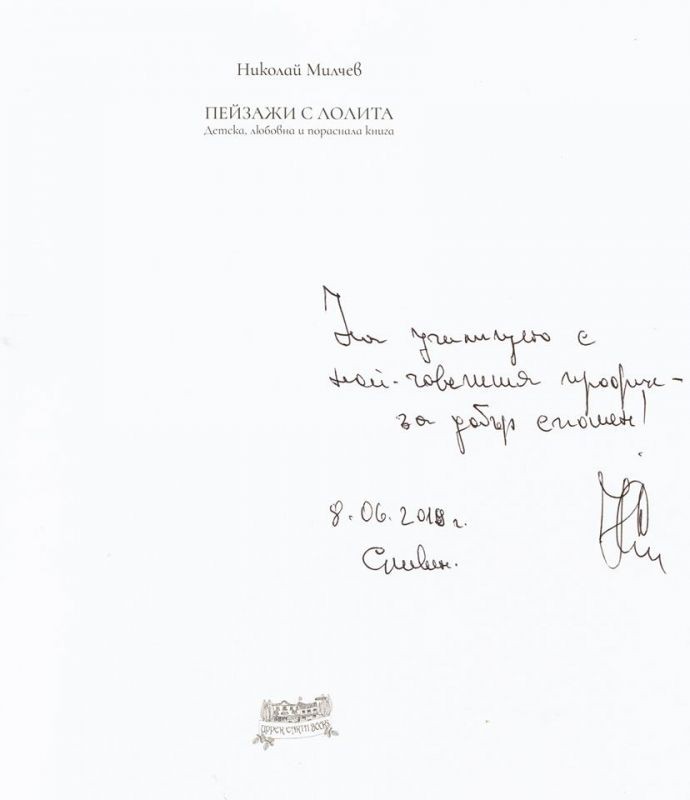 Николай Милчев
ПЕЙЗАЖИ С ЛОЛИТА
Детска, любовна и пораснала книга
На училището с
най-човешкия профил –
за добър спомен!
8.06.2018 г.
Сливен.